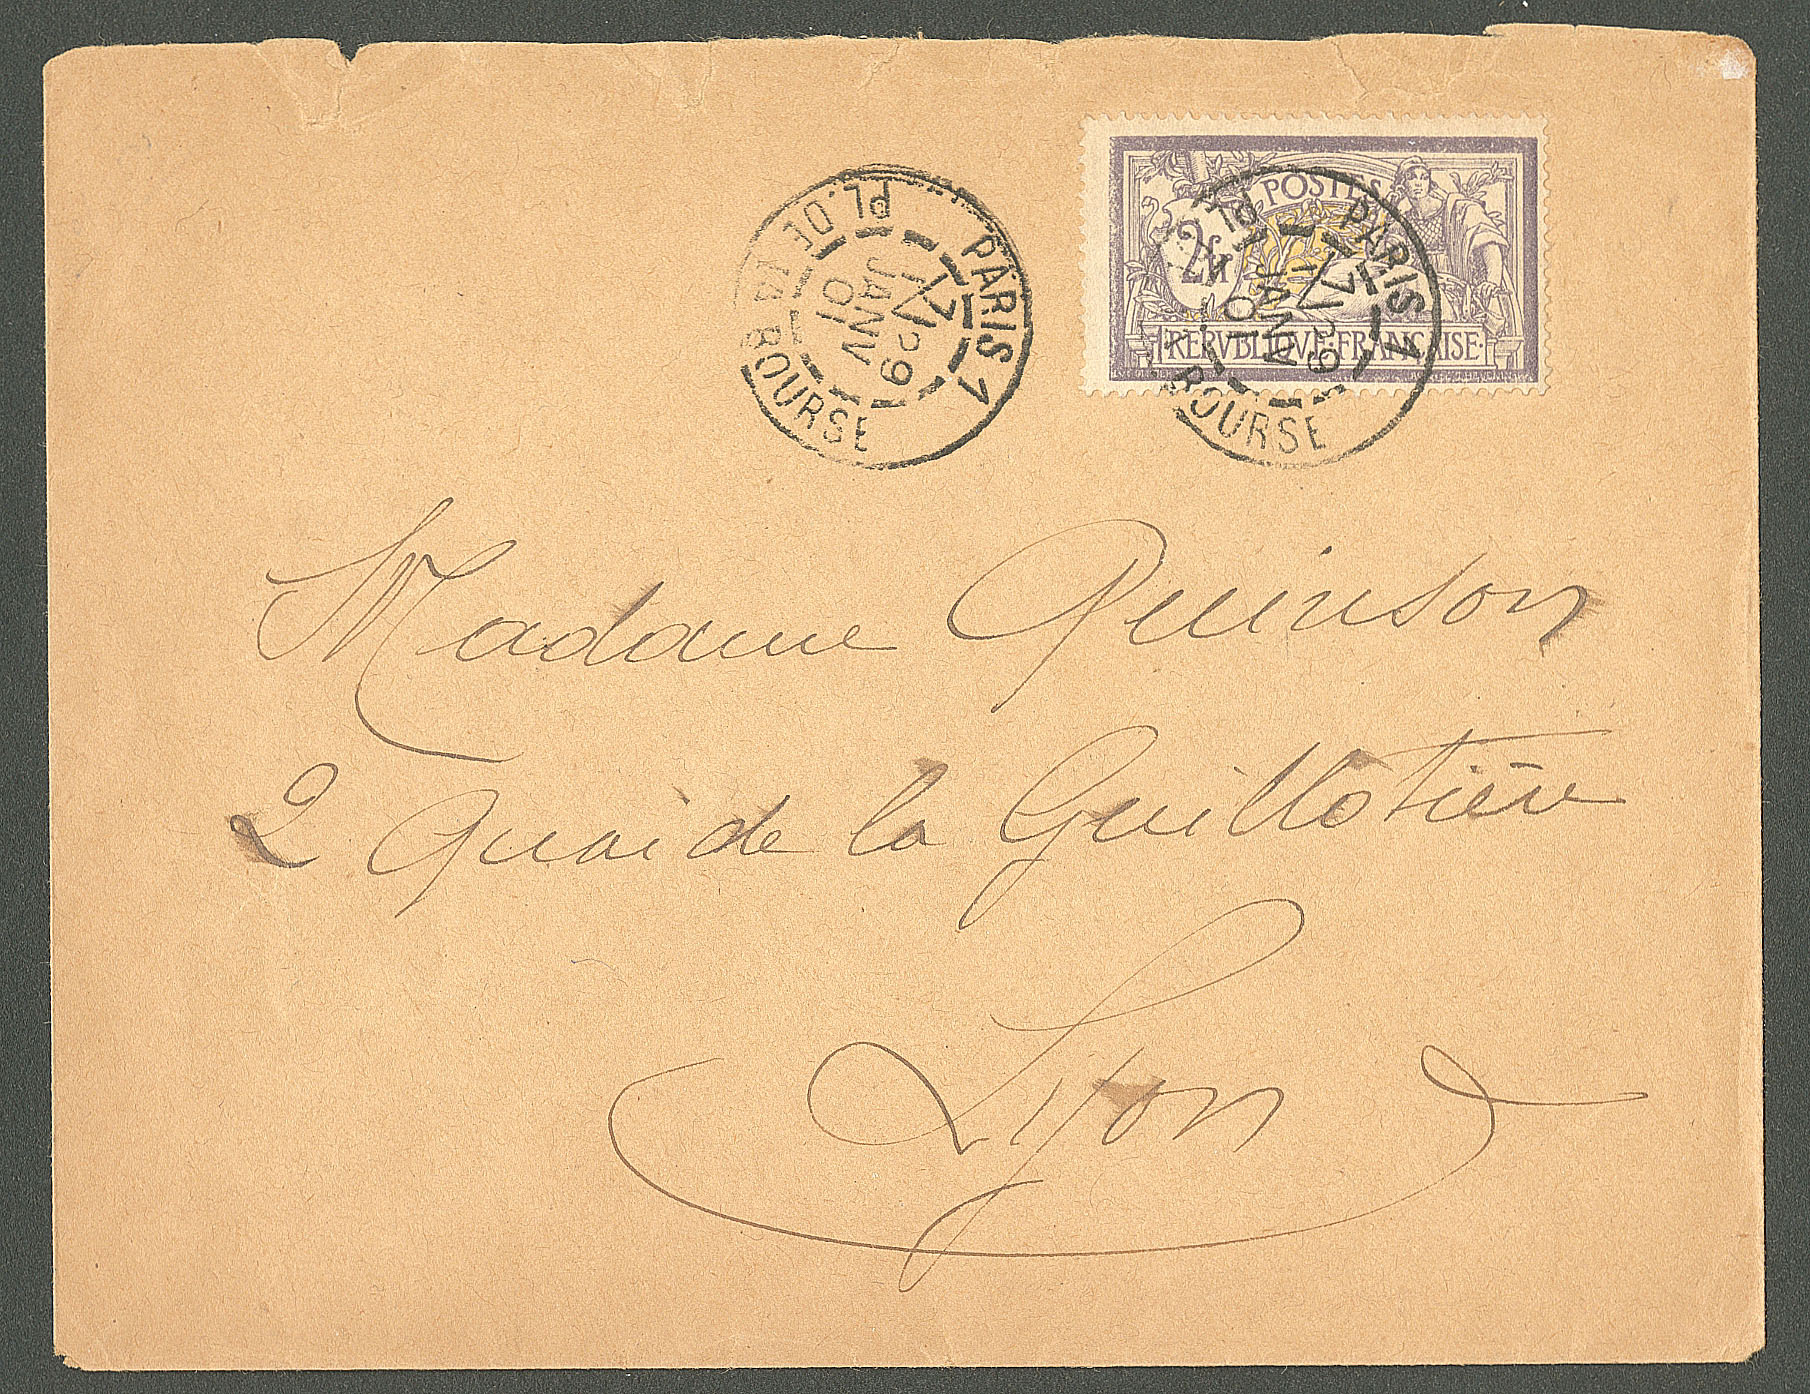 PARIS 1
17 29
JANV
01
PL. DE LA BOURSE
POSTES
2F
REPVBLIQVE FRANÇAISE
PARIS 1
17 29
JANV
01
BOURSE
Madame Quinson
2 Quai de la Guillotière
Lyon